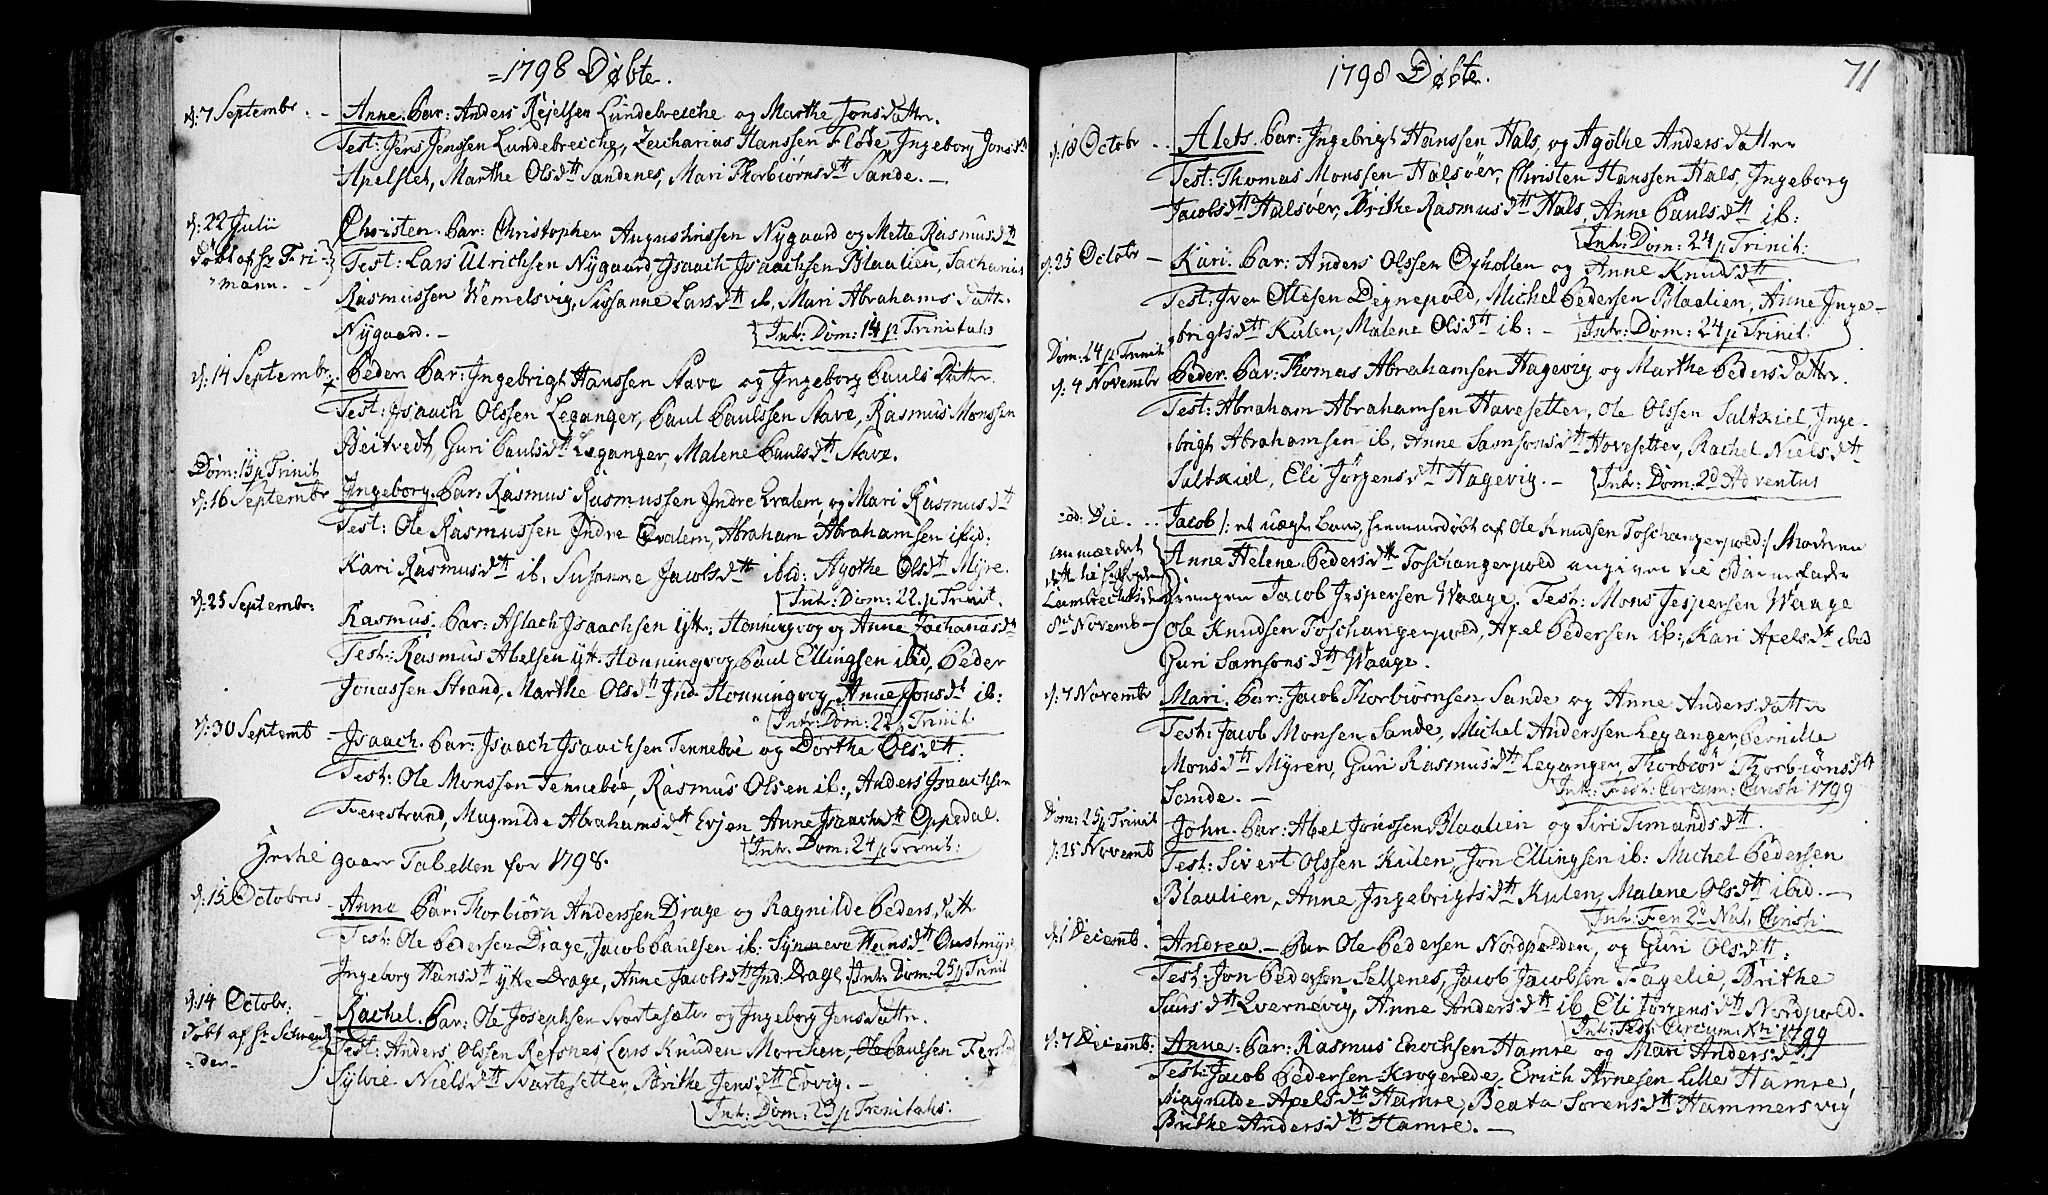 =1798 Døbte.
d: 7 Septembr. - Anne. Par: Anders Rejelsen Lundebreche og Marthe Jonsdattr.
Test: Jens Jenssen Lundebreiche, Zacharias Hanssen Fløde, Ingeborg Jonsdtr
Apelset, Marthe Olsdtt Sandenes, Mari Thorbiørnsdtt Sande. -
d: 22 Julii Christen. Par: Christopher Augustinssen Nygaard og Mette Rasmusdtt
døbt af Hr Fri- Test: Lars Ulrichsen Nygaard, Isaach Isaachsen Blaalien, Zacharias
mann. - Rasmussen Wemelsvig, Sissanne Larsdtt ib, Mari Abrahamsdattr.
Nygaard. - Intr: Dom: 14 p Trinitatis
d: 14 Septembr. Peder. Par: Ingebrigt Hanssen Stave og Ingeborg Pauls Dattr.
Test: Isaach Olssen Leganger, Paul Paulssen Stave, Rasmus Monssen
Beitvedt, Guri Paulsdtt Leganger, Malene Paulsdtt Stave.
Dom: 15 p Trinit
d: 16 Septembr Ingeborg. Par: Rasmus Rasmussen Indre Qvalem, og Mari Rasmusdtt
Test: Ole Rasmussen Indre Qvalem, Abraham Abrahamsen ibid:
Kari Rasmusdtt ib, Susanne Jacobsdtt ibid: Agothe Olsdtt Myre.
Intr: Dom: 22. p Trinit.
d: 25 Septembr: Rasmus. Par: Aslach Isaachsen ytt: Honningvog og Anne Zachariasdtt
Test: Rasmus Abelsen ytt. Honningvog, Paul Ellingsen ibid, Peder
Jonassen Strand, Marthe Olsdtt Ind Honningvog, Anne Jonsdt ib:
Intr: Dom: 22 p Trinit.
d: 30 Septemb Isaach. Par: Isaach Isaachsen Tennebøe og Dorthe Olsdtt.
Test: Ole Monssen Tennebøe, Rasmus Olsen ib:, Anders Isaachsen
Tverestrand, Magnilde Abrahamsdtt Evjen Anne Isaachsdtt Oppedal.
Intr: Dom: 24 p Trinit:
gaaer Tabellen for 1798.
d: 15 Octobris - Anne Par: Thorbiørn Anderssen Drage og Ragnilde Peders Dattr
Test: Ole Pedersen Drage, Jacob Paulsen ib: Synneve Hansdtt Qvstmyr
Ingeborg Hansdtt ytte Drage, Anne Jacobsdtt Ind: Drage Intr: Dom: 25 p Trinit
d: 14 Octobr. Rachel. Par: Ole Josephsen Svartesæter og Ingeborg Jensdattr.
døbt af Hr Test: Anders Olssen Refsnes Lars Knuden Morchen, Ole Paulsen
Sylvie Nielsdtt Svartesetter, Brithe Jensdtt Ervig. -
Intr: Dom: 23 p Trinitatis.
1798 Døbte. 71
d: 18 Octobr .. Alets. Par: Ingebrigt Hanssen Hals, og Agothe Andersdattr
Test: Thomas Monssen Halsøer, Christen Hanssen Hals, Ingeborg
Jacobsdtt Halsøer, Brithe Rasmusdtt Hals, Anne Paulsdtt ib:
Intr: Dom: 24 p Trinit:
d: 25 Octobr - Kari. Par: Anders Olssen Opholten og Anne Knudsdtt
Test: Iver Ollesen Degnepold, Michel Pedersen Blaalien, Anne Inge-
brigtsdtt Kulen, Malene Olsdtt ib: - Intr: Dom: 24 p Trinit.
Dom: 24 p Trinit
d. 4 Novembr Peder. Par: Thomas Abrahamsen Hagevig og Marthe Pedersdattr.
Test: Abraham Abrahamsen Havesetter, Ole Olssen Saltkiel, Inge-
brigt Abrahamsen ib, Anne Samsonsdtt Hovesetter, Rachel Nielsdtt
Saltkiel, Eli Jørgensdtt Hagevig. - Intr: Dom: 2d Adventus
eod: Die. .. Jacob /: et uægte Barn, hiemmedøbt af Ole Knudsen Toschangerpold :/ Moderen
anmældet Anne Helene Pedersdtt Toschangerpold angiver til Barnefader
Drengen Jacob Jespersen Waage. Test: Mons Jespersen Waage
8de Novemb Ole Knudsen Toschangerpold, Apel Pedersen ib:, Kari Apelsdtt ibid
Guri Samsonsdtt Waage.
d: 7 Novembr Mari. Par: Jacob Thorbiørnsen Sande og Anne Andersdattr
Test: Jacob Monsen Sande, Michel Anderssen Leganger, Pernille
Monsdtt Myren, Guri Rasmusdtt Leganger, Thorbiør Thorbiørnsdtt
Sande. - Intr: Fest: Circum: Christi 1799
Dom: 25 p Trinit John. Par: Abel Jonssen Blaalien og Siri Simundsdtt.
d: 25 Novemb Test: Sivert Olssen Kulen, Jon Ellingsen ib: Michel Pedersen
Blaalien, Anne Ingebrigtsdtt Kulen, Malene Olsdtt ibid. -
Intr: Fer: 2d Nat: Christi
d: 1 Decemb. Andrea. - Par Ole Pedersen Nordpolden, og Guri Olsdtt:
Test: Jon Pedersen Sellenes, Jacob Jacobsen Fagelie, Brithe
Qvernevig, Anne Andersdtt ib. Eli Jørensdtt Nordpold.
Intr: Fest: Circum: Xti 1799
d: 7 Decemb: Anne. Par: Rasmus Enochsen Hamre og Mari Andersdtt
Test: Jacob Pedersen Krogerede, Erich Arnesen Lille Hamre,
Magnilde Apelsdtt Hamre, Beata Sørensdtt Hammersvig
Brithe Andersdtt Hamre. -